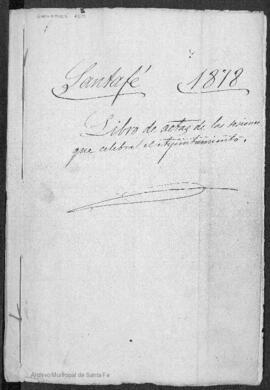 Santafé 1878
Libro de actas de las sesiones
que celebra el Ayuntamiento.
Archivo Municipal de Santa Fe